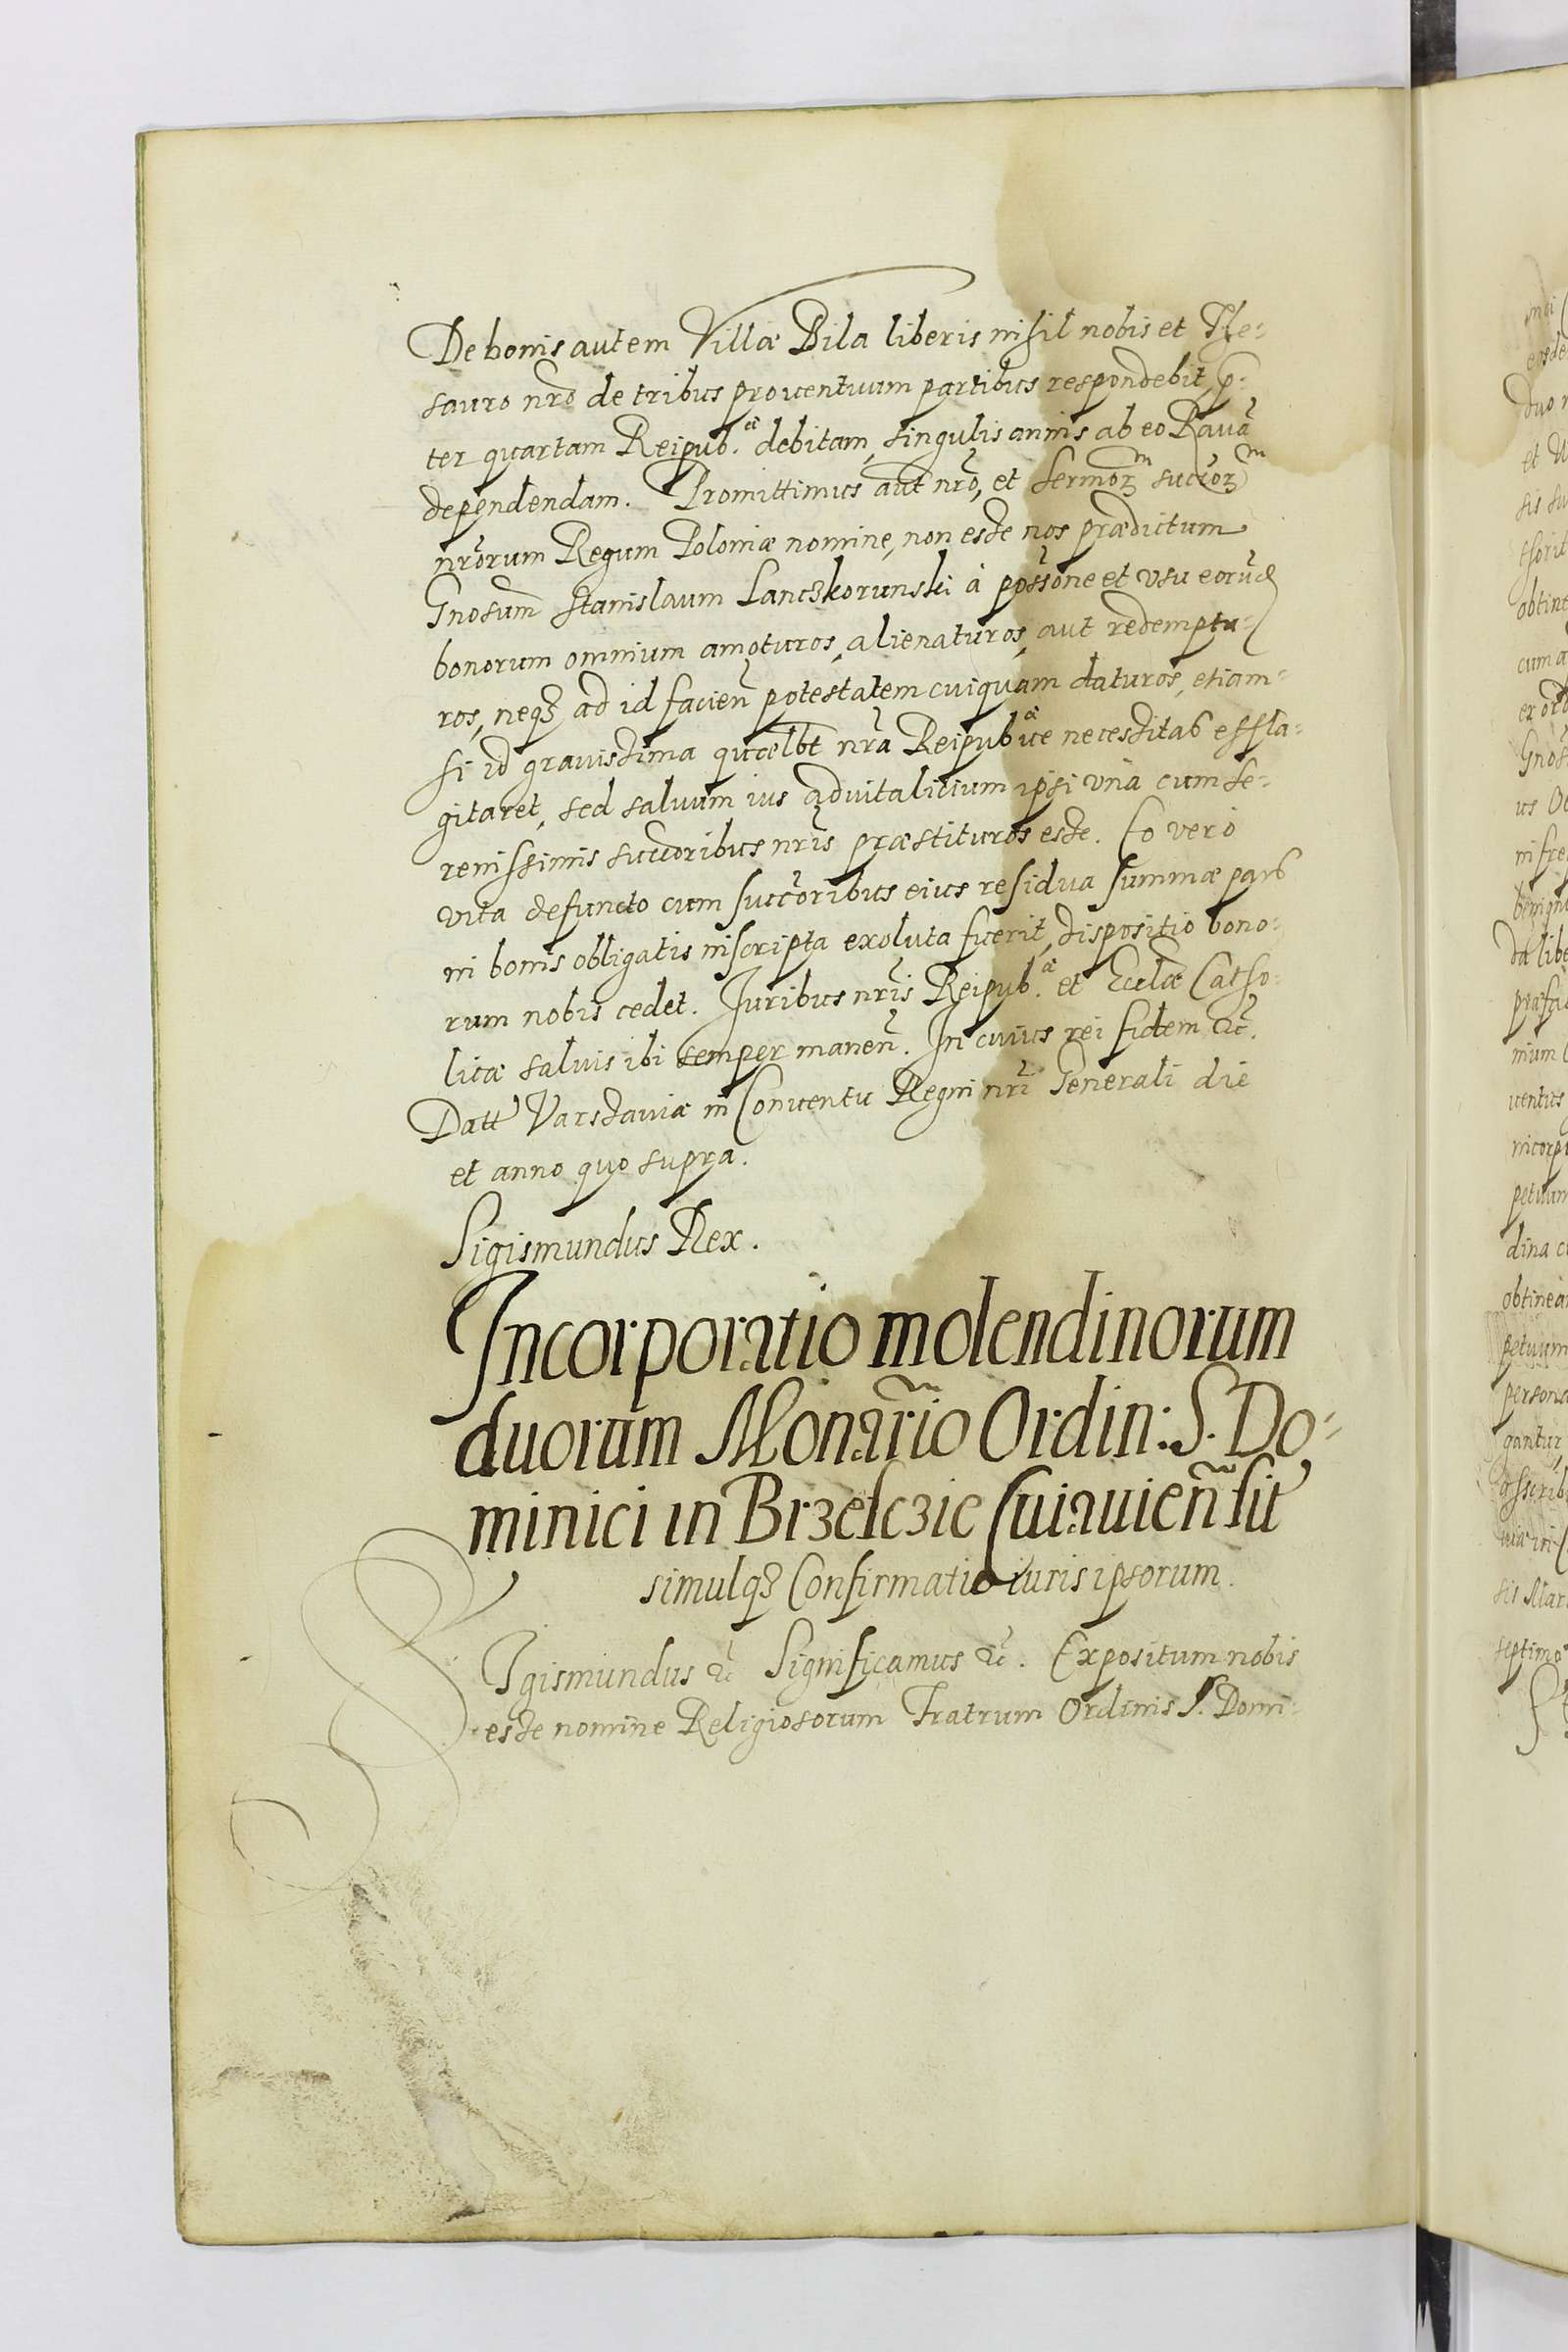 De bonis autem Villæ Bila liberis nihil nobis et The-
sauro nr̃o de tribus prouentuum partibus respondebit, p̱-
ter quartam Reipub.æ debitam, singulis annis ab eo Rauã
dependendam. Promittimus aũt nr̃o, et Sermorꝝ̃ succorꝝ̃
nr̃orum Regum Poloniæ nomine, non esse nos prædictum
Gnosum̃ Stanislaum Lanczkorunski à possõne et vsu eorũd
bonorum omnium amoturos, alienaturos, aut redemptu-
ros, neqȝ ad id facien̄ potestatem cuiquam daturos, etiam-
si id grauissima quælbt nr̃a Reipubcæ necessitas effla-
gitaret, sed saluum ius aduitalitium ipsi vnà cum se-
renissimis succoribus nr̃is præstituros esse. Eo verò
vita defuncto cum succ̃oribus eius residua summæ pars
in bonis obligatis inscripta exoluta fuerit, dispositio bono-
rum nobis cedet. Juribus nr̃is Reipub.æ et Eccl̃æ Catho-
licæ saluis ibi semper manen̄. In cuius rei fidem &c̃.
Datt Varssauiæ in Conuentu Regni nr̃i Generali die
et anno quo supra.
Sigismundus Rex.
Incorporatio molendinorum
duorum Monar̃io Ordin: S. Do-
minici in Brzesczie Cuiauien̄ sit
simulqȝ Confirmatio iuris ipsorum.
SIgismundus &c̃ Significamus &c̃. Expositum nobis
esse nomine Religiosorum Fratrum Ordinis S. Domi-